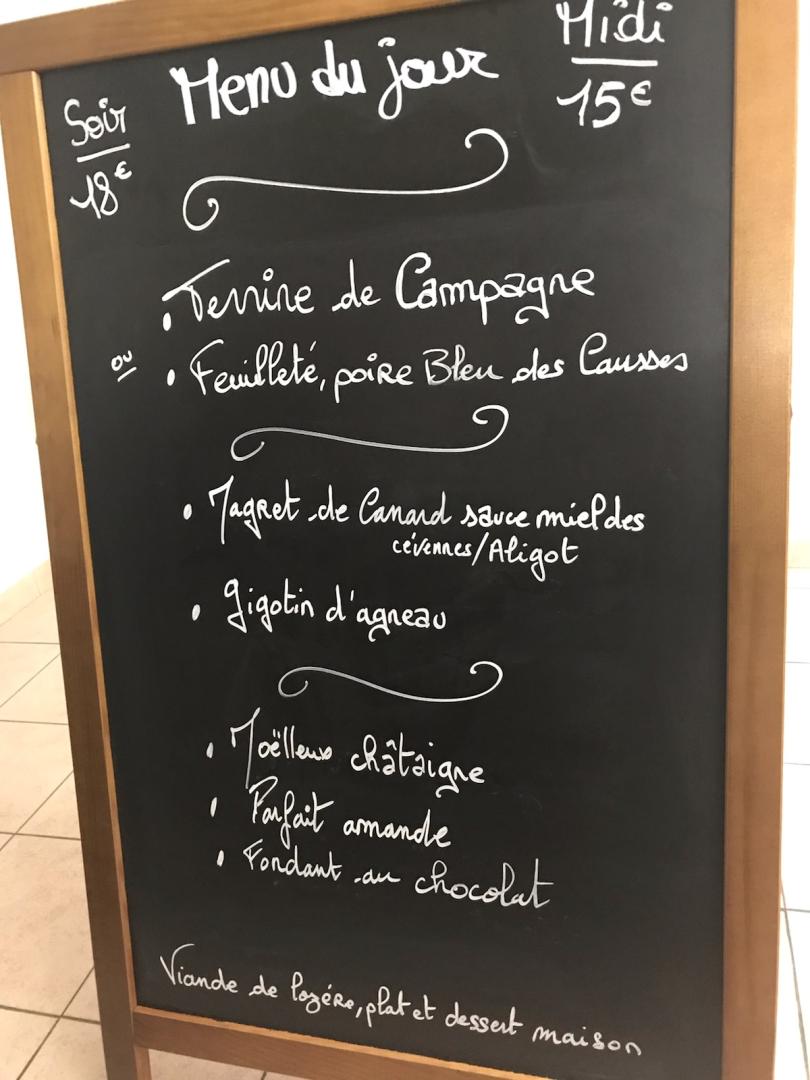 Menu du jour
Midi
15€
Soir
18€
• Terrine de Campagne
ou
• Feuilleté, poire Bleu des Causses
• Magret de Canard sauce miel des
cévennes/Aligot
• Gigotin d'agneau
• Moëlleux châtaigne
• Parfait amande
• Fondant au chocolat
Viande de lozére, plat et dessert maison